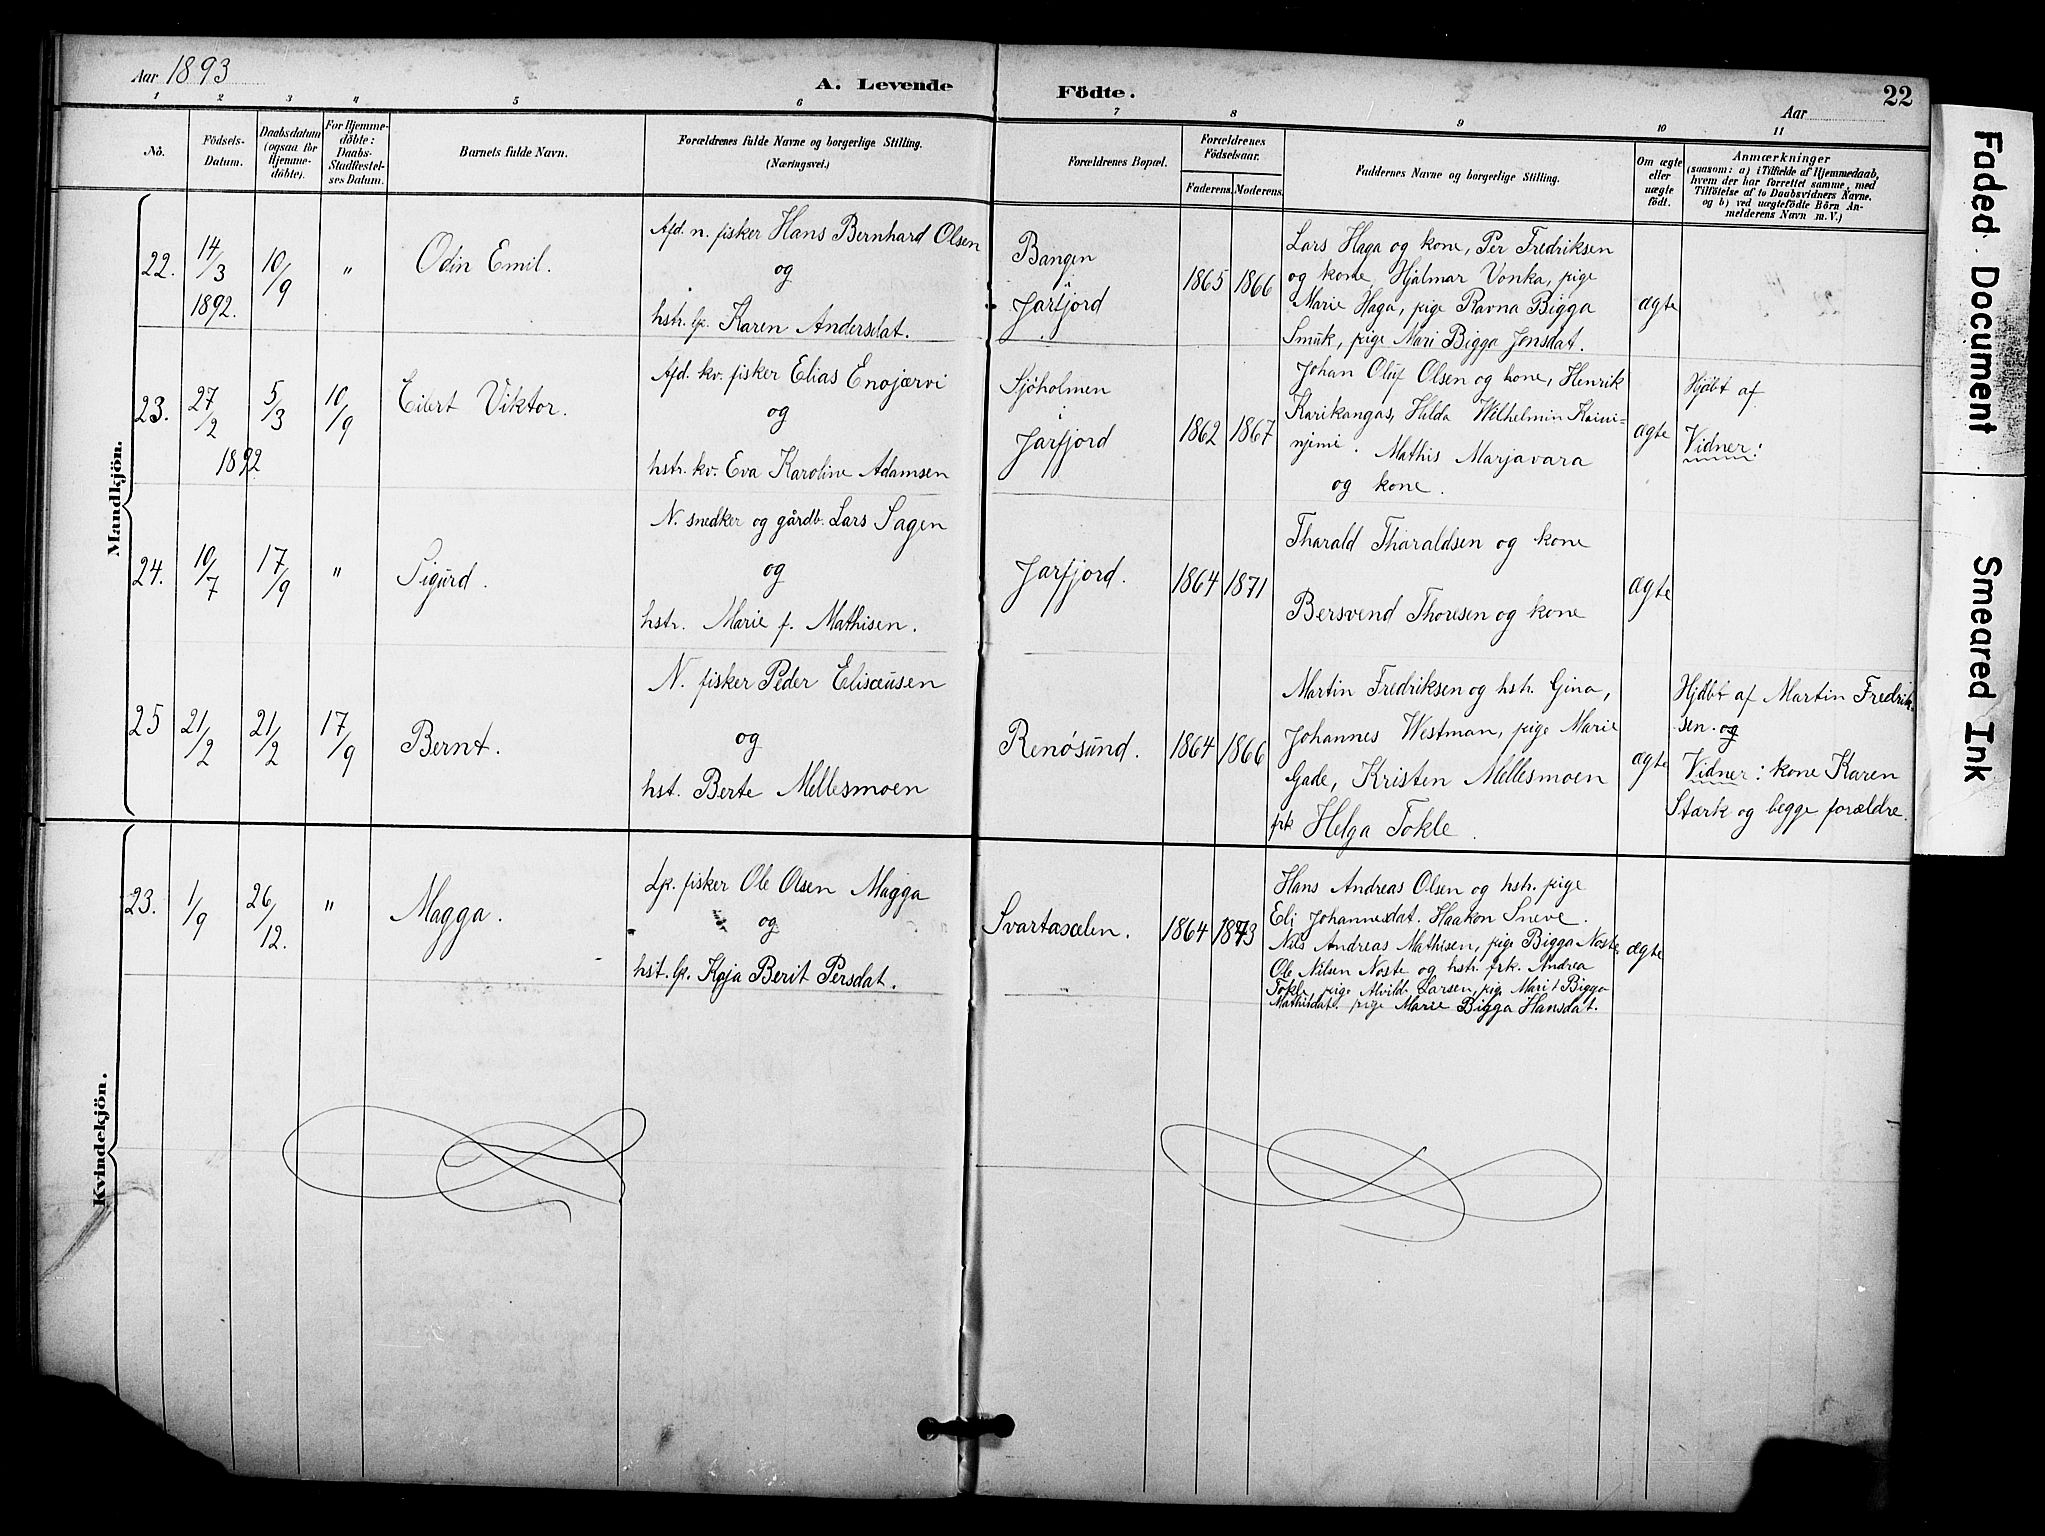 Aar 1893
A. Levende Födte.
Aar
22
1 2 3 4 5 6 7 8 9 10 11
No.
Födsels-Datum.
Daabsdatum (ogsaa for Hjemme-døbte).
For Hjemme-døbte: Daabs-Stadfæstel-ses Datum.
Barnets fulde Navn.
Forældrenes fulde Navne og borgerlige Stilling.
(Næringsvei.)
Forældrenes Bopæl.
Forældrenes Födselsaar.
Faderens. Moderens.
Faddernes Navne og borgerlige Stilling.
Om ægte eller uægte født.
Anmærkninger
(saasom: a) i Tilfælde af Hjemmedaab,
hvem der har forrettet samme, med
Tilföielse af to Daabsvidners Navne.
og b) ved uægtefödte Börn An-
melderens Navn m. V.)
Mandkjön.
22. 14/3 1892. 10/9 " Odin Emil.
Afd. n. fisker Hans Bernhard Olsen
og
hstr. lp. Karen Andersdat.
Bangen
i
Jarfjord
1865 1866
Lars Haga og kone, Per Fredriksen
og kone, Hjalmar Vonka, pige
Marie Haga, pige Ravna Bigga
Smuk, pige Mari Bigga Jonsdat.
ægte
23. 27/2 5/3 1892 10/9 Eilert Viktor.
Afd. kv. fisker Elias Enojærvi
og
hstr. kv. Eva Karoline Adamsen
Sjöholmen
i
Jarfjord
1862 1867
Johan Oluf Olsen og kone, Henrik
Karikangas, Hilda Wilhelmin Kaini-
njemi. Mathis Marjavara
og kone.
ægte
Hjdbt af
Vidner:
24. 10/7 17/9 " Sigurd.
N. snedker og gårdb. Lars Sagen
og
hstr. Marie f. Mathisen.
Jarfjord.
1864 1871
Tharald Tharaldsen og kone
Bersvend Thoresen og kone
ægte
25 21/2 21/2 17/9 Bernt.
N. fisker Peder Elisæusen
og
hst. Berte Mellesmoen
Renøsund.
1864 1866
Martin Fredriksen og hstr. Gina,
Johannes Westman, pige Marie
Gade, Kristen Mellesmoen
frk Helga Tokle.
ægte
Hjdbt af Martin Fredrik-
sen. og
Vidner: kone Karen
Stærk og begge forældre.
Kvindekjön.
23. 1/9 26/12. " Magga.
Lp. fisker Ole Olsen Magga
og
hst. lp. Kaja Berit Persdat.
Svartaselen.
1864 1873
Hans Andreas Olsen og hstr. pige
Eli Johannesdat. Haakon Sneve.
Nils Andreas Mathisen, pige Bigga Noste.
Ole Nilsen Noste og hstr. frk. Andrea
Tokle, pige Alvild Larsen, pige Marit Bigga
Mathisdat. pige Marie Bigga Hansdat.
ægte
Faded Document
Smeared Ink